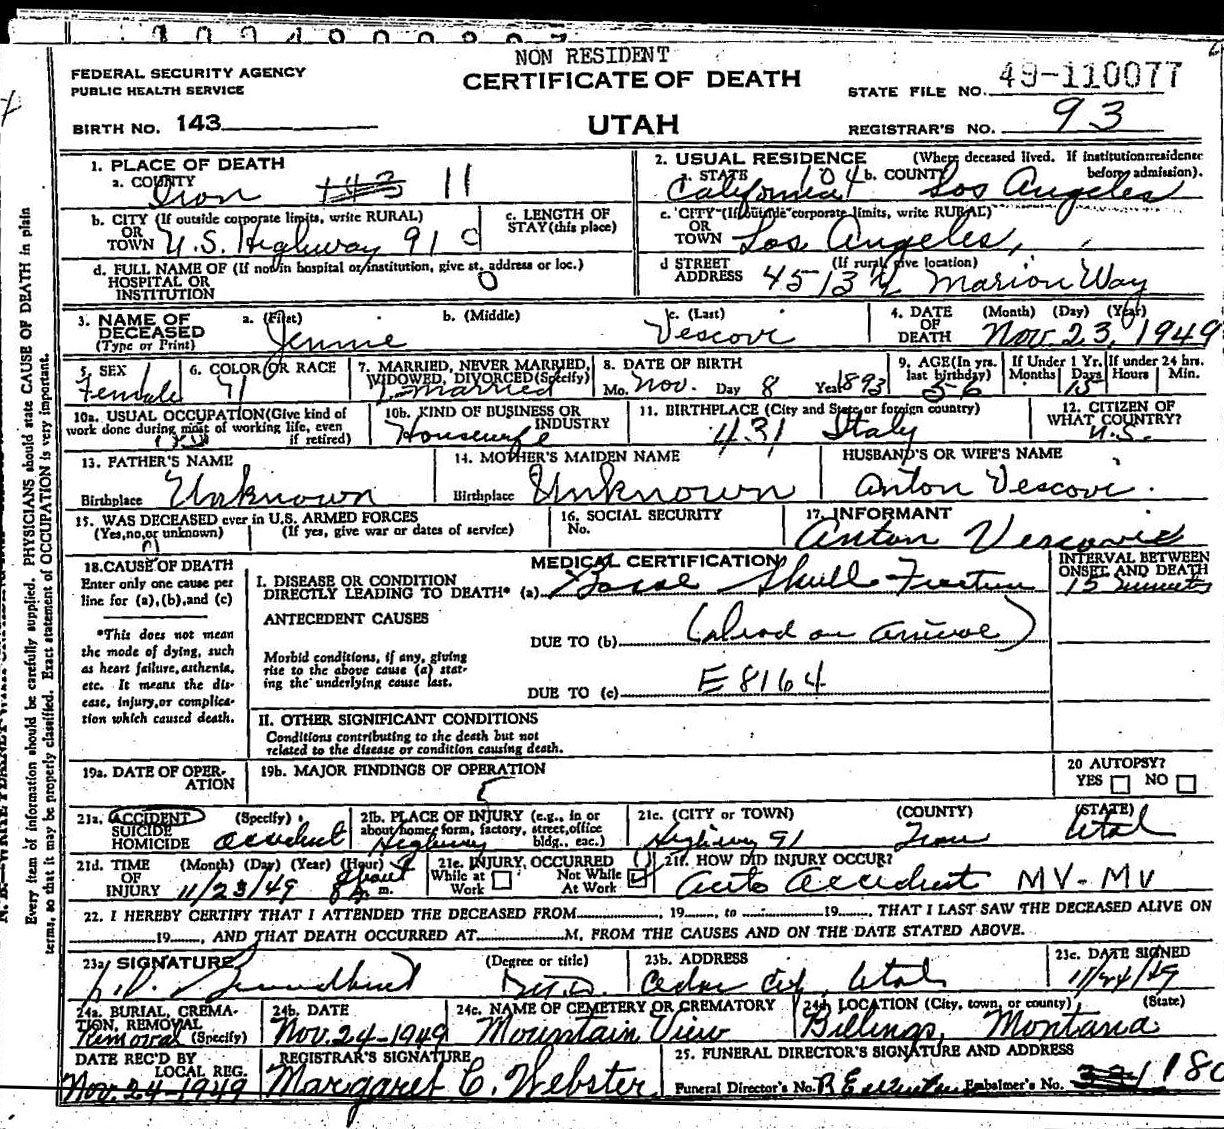 NON RESIDENT
FEDERAL SECURITY AGENCY
PUBLIC HEALTH SERVICE
CERTIFICATE OF DEATH
STATE FILE NO. 49-110077
BIRTH NO. 143
UTAH
REGISTRAR'S NO. 93
1. PLACE OF DEATH
a. COUNTY Iron 143 11
2. USUAL RESIDENCE (Where deceased lived. If institution: residence before admission).
a. STATE California 104 b. COUNTY Los Angeles
b. CITY (If outside corporate limits, write RURAL) OR TOWN U.S. Highway 91
c. LENGTH OF STAY (this place)
c. CITY (If outside corporate limits, write RURAL) OR TOWN Los Angeles,
d. FULL NAME OF (If not in hospital or institution, give st. address or loc.) HOSPITAL OR INSTITUTION 0
d STREET ADDRESS (If rural, give location) 4513 1/2 Marion Way
3. NAME OF DECEASED (Type or Print) a. (First) Jennie b. (Middle) c. (Last) Vescovi
4. DATE OF DEATH (Month) (Day) (Year) Nov. 23, 1949
5. SEX Female
6. COLOR OR RACE
7. MARRIED, NEVER MARRIED, WIDOWED, DIVORCED (Specify) Married
8. DATE OF BIRTH Mo. Nov. Day 8 Year 1893
9. AGE (In yrs. last birthday) 56
If Under 1 Yr. Months Days 15
If under 24 hrs. Hours Min.
10a. USUAL OCCUPATION (Give kind of work done during most of working life, even if retired)
10b. KIND OF BUSINESS OR INDUSTRY Housewife
11. BIRTHPLACE (City and State or foreign country) 431 Italy
12. CITIZEN OF WHAT COUNTRY? U.S.
13. FATHER'S NAME
Birthplace Unknown
14. MOTHER'S MAIDEN NAME
Birthplace Unknown
HUSBAND'S OR WIFE'S NAME
Anton Vescovi.
15. WAS DECEASED ever in U.S. ARMED FORCES
(Yes, no, or unknown) (If yes, give war or dates of service)
16. SOCIAL SECURITY No.
17. INFORMANT
Anton Vescovi
18. CAUSE OF DEATH
Enter only one cause per line for (a), (b), and (c)
*This does not mean the mode of dying, such as heart failure, asthenia, etc. It means the disease, injury, or complication which caused death.
MEDICAL CERTIFICATION
INTERVAL BETWEEN ONSET AND DEATH
I. DISEASE OR CONDITION DIRECTLY LEADING TO DEATH* (a) Basal Skull Fracture 15 minutes
ANTECEDENT CAUSES
DUE TO (b) (dead on arrival)
Morbid conditions, if any, giving rise to the above cause (a) stating the underlying cause last.
DUE TO (c) E8164
II. OTHER SIGNIFICANT CONDITIONS
Conditions contributing to the death but not related to the disease or condition causing death.
19a. DATE OF OPERATION
19b. MAJOR FINDINGS OF OPERATION
20 AUTOPSY?
YES NO
21a. ACCIDENT SUICIDE HOMICIDE (Specify) Accident
21b. PLACE OF INJURY (e.g., in or about home, farm, factory, street, office bldg., eac.) Highway
21c. (CITY or TOWN) (COUNTY) (STATE)
Highway 91 Iron Utah
21d. TIME OF INJURY (Month) (Day) (Year) (Hour) 11/23/49 about 8 p m.
21e. INJURY OCCURRED While at Work Not While At Work
21f. HOW DID INJURY OCCUR?
Auto Accident MV-MV
22. I HEREBY CERTIFY THAT I ATTENDED THE DECEASED FROM 19 to 19, THAT I LAST SAW THE DECEASED ALIVE ON
19, AND THAT DEATH OCCURRED AT M, FROM THE CAUSES AND ON THE DATE STATED ABOVE.
23a. SIGNATURE (Degree or title)
23b. ADDRESS
Cedar City, Utah
23c. DATE SIGNED
11/24/49
24a. BURIAL, CREMATION, REMOVAL (Specify) Removal
24b. DATE
Nov. 24-1949
24c. NAME OF CEMETERY OR CREMATORY
Mountain View
24d. LOCATION (City, town, or county) (State)
Billings, Montana
DATE REC'D BY LOCAL REG.
Nov. 24-1949
REGISTRAR'S SIGNATURE
Margaret C. Webster
25. FUNERAL DIRECTOR'S SIGNATURE AND ADDRESS
Funeral Director's No. Embalmer's No. 180
Every item of information should be carefully supplied. PHYSICIANS should state CAUSE OF DEATH in plain
terms, so that it may be properly classified. Exact statement of OCCUPATION is very important.